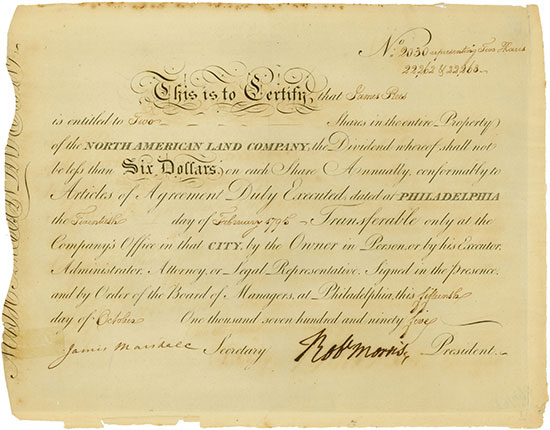 No. 2030 representing Two Shares
22262 & 22263
This is to Certify, that James Rees
is entitled to Two Shares in the entire Property
of the NORTH AMERICAN LAND COMPANY, the Dividend whereof shall not
be less than Six Dollars on each Share Annually, conformably to
Articles of Agreement Duly Executed, dated at PHILADELPHIA
the Twentieth day of February 1795 Transferable only at the
Company's Office in that CITY, by the Owner in Person, or by his Executor,
Administrator, Attorney, or Legal Representative. Signed in the Presence,
and by Order of the Board of Managers, at Philadelphia, this fifteenth
day of October One thousand seven hundred and ninety five
James Marshall Secretary Robt Morris, President.